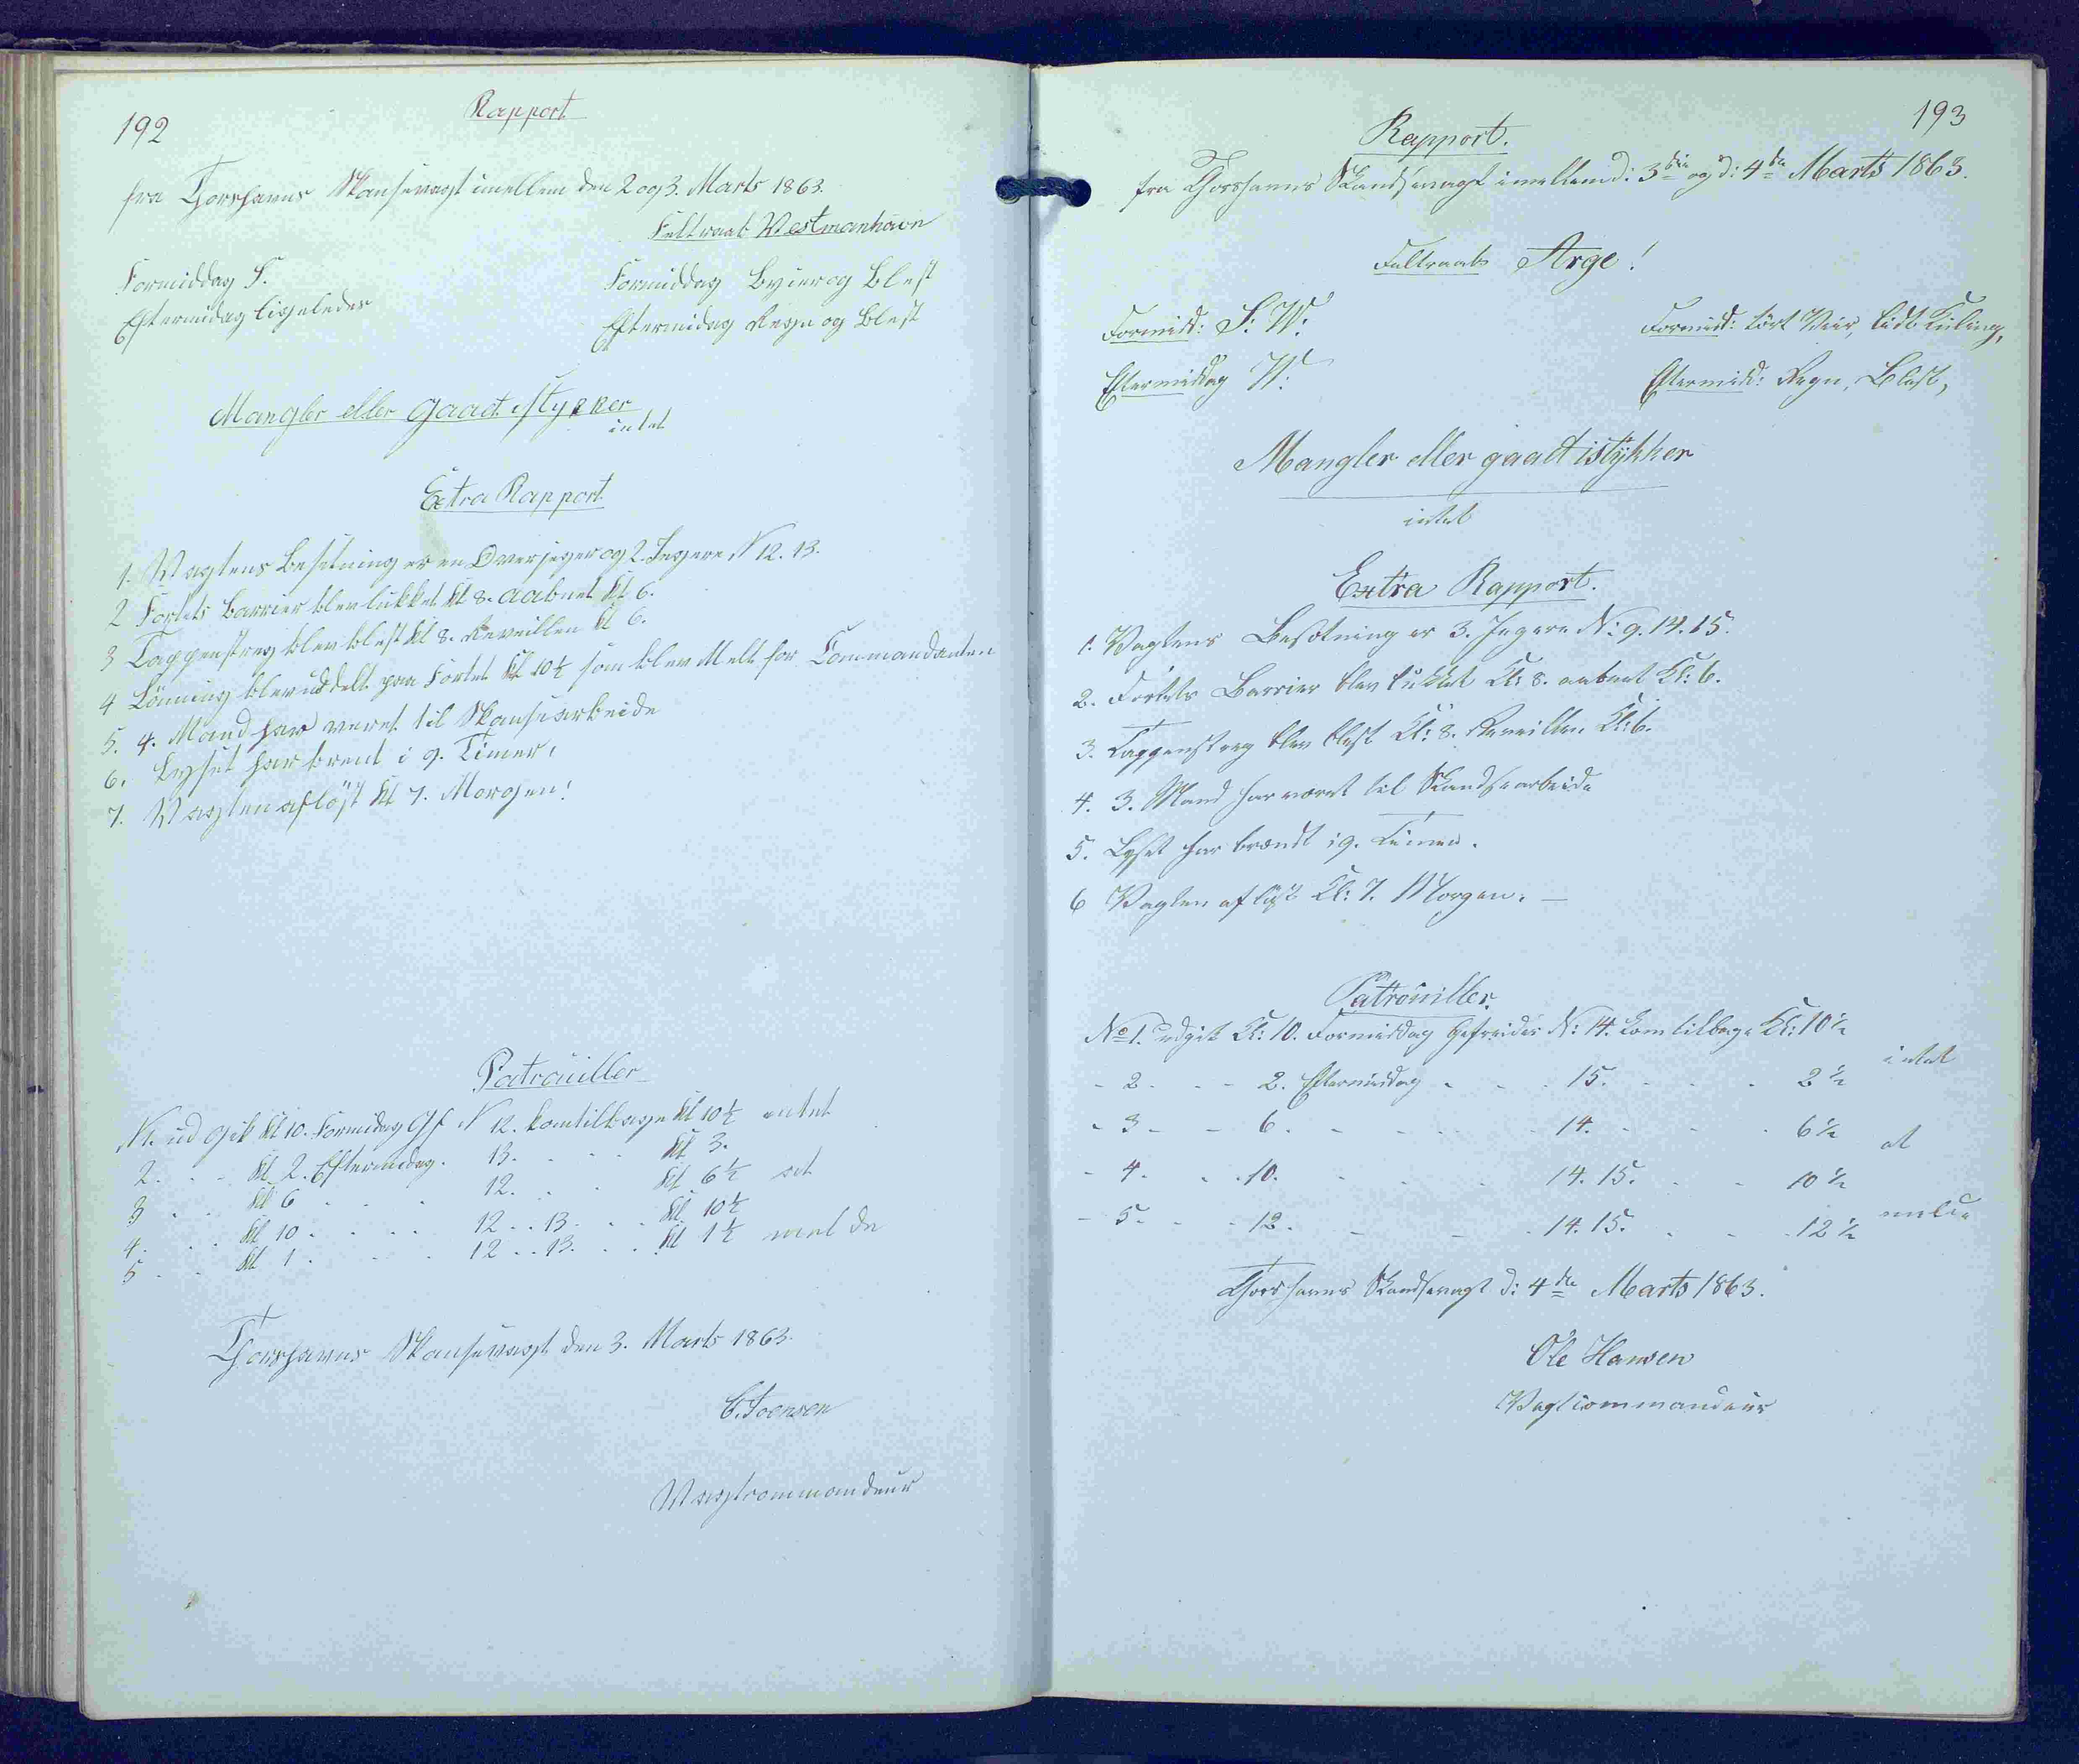 192
Rapport
fra Thorshavns Skansevagt imellem den 2 og 3. Marts 1863.
Feltraab Westmanhavn
Formiddag S. Formiddag Byier og Blest
Eftermidag ligeledes Eftermidag Regn og Blest
Mangler eller gaaet istykker
intet
Extra Rapport
1. Wagtens Besetning er en Overjeger og 2. Jegere N 12. 13.
2 Fortets Barrier blev lukket Kl 8. aabnet Kl 6.
3 Tappenstreg blev blest Kl 8. Reveillen Kl 6.
4 Lönning blev uddelt paa Fortet Kl 10½ som blev Melt for Commandanten
5. 4. Mand har veret til Skansearbeide
6. Lyset har brent i 9. Timer,
7. Wagten aflöst Kl 7. Morgen!
Patrouiller
N1. ud gik Kl 10. Formidag Gf N 12. kom tilbage Kl 10½ intet
2. . . Kl 2. Eftermidag. 13. . . . Kl 3.
3 . . Kl 6 . . . 12. . . Kl 6½ at
4. . . Kl 10 . . . 12 . . 13. . . Kl 10½
5 . . Kl 1 . . . 12 . . 13. . . Kl 1½ melde
Thorshavns Skansevagt den 3. Marts 1863.
C. Joensen
Wagtcommandeur
193
Rapport.
fra Thorshavns Skandsevagt imellem d: 3die og d: 4de Marts 1863.
Feltraab Arge!
Formidd: S: W: Formidd: tört Veir, lidt Kuling,
Eftermiddag W: Eftermidd: Regn, Blest,
Mangler eller gaaet istykker
intet
Extra Rapport.
1. Vagtens Besætning er 3. Jegere N: 9. 14. 15.
2. Fortets Barrier blev lukket Kl: 8. aabnet Kl: 6.
3. Tappenstreg blev blest Kl: 8. Reveillen Kl: 6.
4. 3. Mand har været til Skandsearbeide
5. Lyset har brændt i 9. Timer.
6 Vagten aflöst Kl: 7. Morgen. —
Patrouiller.
No 1. udgik Kl: 10. Formiddag Gefreider N: 14. kom tilbage Kl: 10½
intet
- 2. - - 2. Eftermiddag . . . 15. . . . 2½
- 3 - - 6. - - - 14. - - . 6½
at
- 4. . . 10. . . . 14. 15. . . 10½
- 5. - - 12. - - . 14. 15. . . . 12½
melde
Thorshavns Skandsevagt d: 4de Marts 1863.
Ole Hansen
Vagtcommandeur